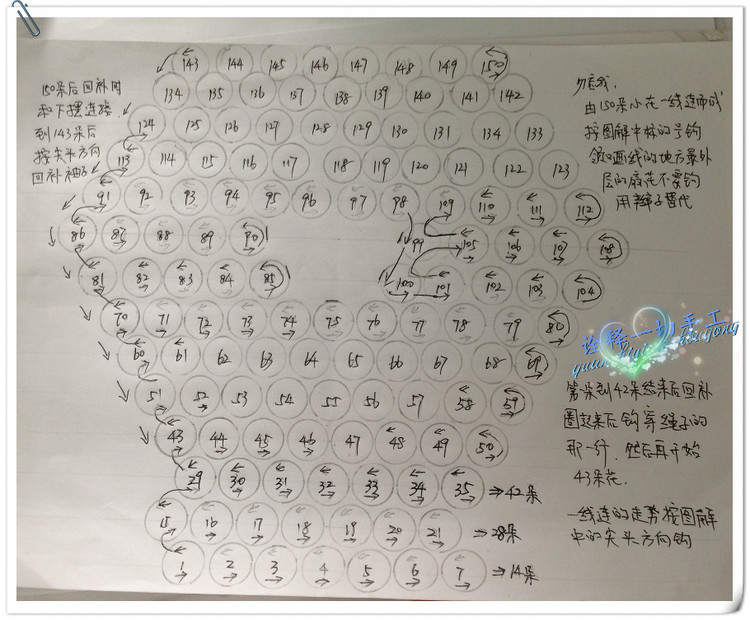 143 144 145 146 147 148 149 150
134 135 136 137 138 139 140 141 142
124 125 126 127 128 129 130 131 134 133
113 114 115 116 117 118 119 120 121 122 123
91 92 93 94 95 96 97 98 109 110 111 112
86 87 88 89 90 99 105 106 107 108
81 82 83 84 85 100 101 102 103 104
70 71 72 73 74 75 76 77 78 79 80
60 61 62 63 64 65 66 67 68 69
51 52 53 54 55 56 57 58 59
43 44 45 46 47 48 49 50
29 30 31 32 33 34 35 →42朵
15 16 17 18 19 20 21 →28朵
1 2 3 4 5 6 7 →14朵
150朵后回补时
和下摆连接
到143朵后
按尖头方向
回补袖子
勿忘我,
由150朵小花一线连而成
按图解中标的号钩
领口画线的地方最外
层的麻花不要钩
用辫子替代
诠释一切手工
第一朵到42朵结束后回补
圈起来后钩穿绳子的
那一行,然后再开始
43朵花.
一线连的走势按图解
中的尖头方向钩